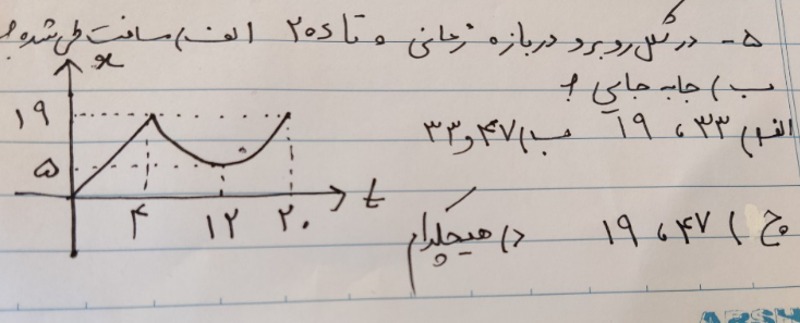 ۵- در شکل روبرو در بازه زمانی ۰ تا ۲۰s الف) مسافت طی شده؟
ب) جابه جایی؟
الف) ۳۳ ، ۱۹ ب) ۴۷ و ۳۳
ج) ۴۷ ، ۱۹ د) هیچکدام
x
۱۹
۵
۴ ۱۲ ۲۰ t